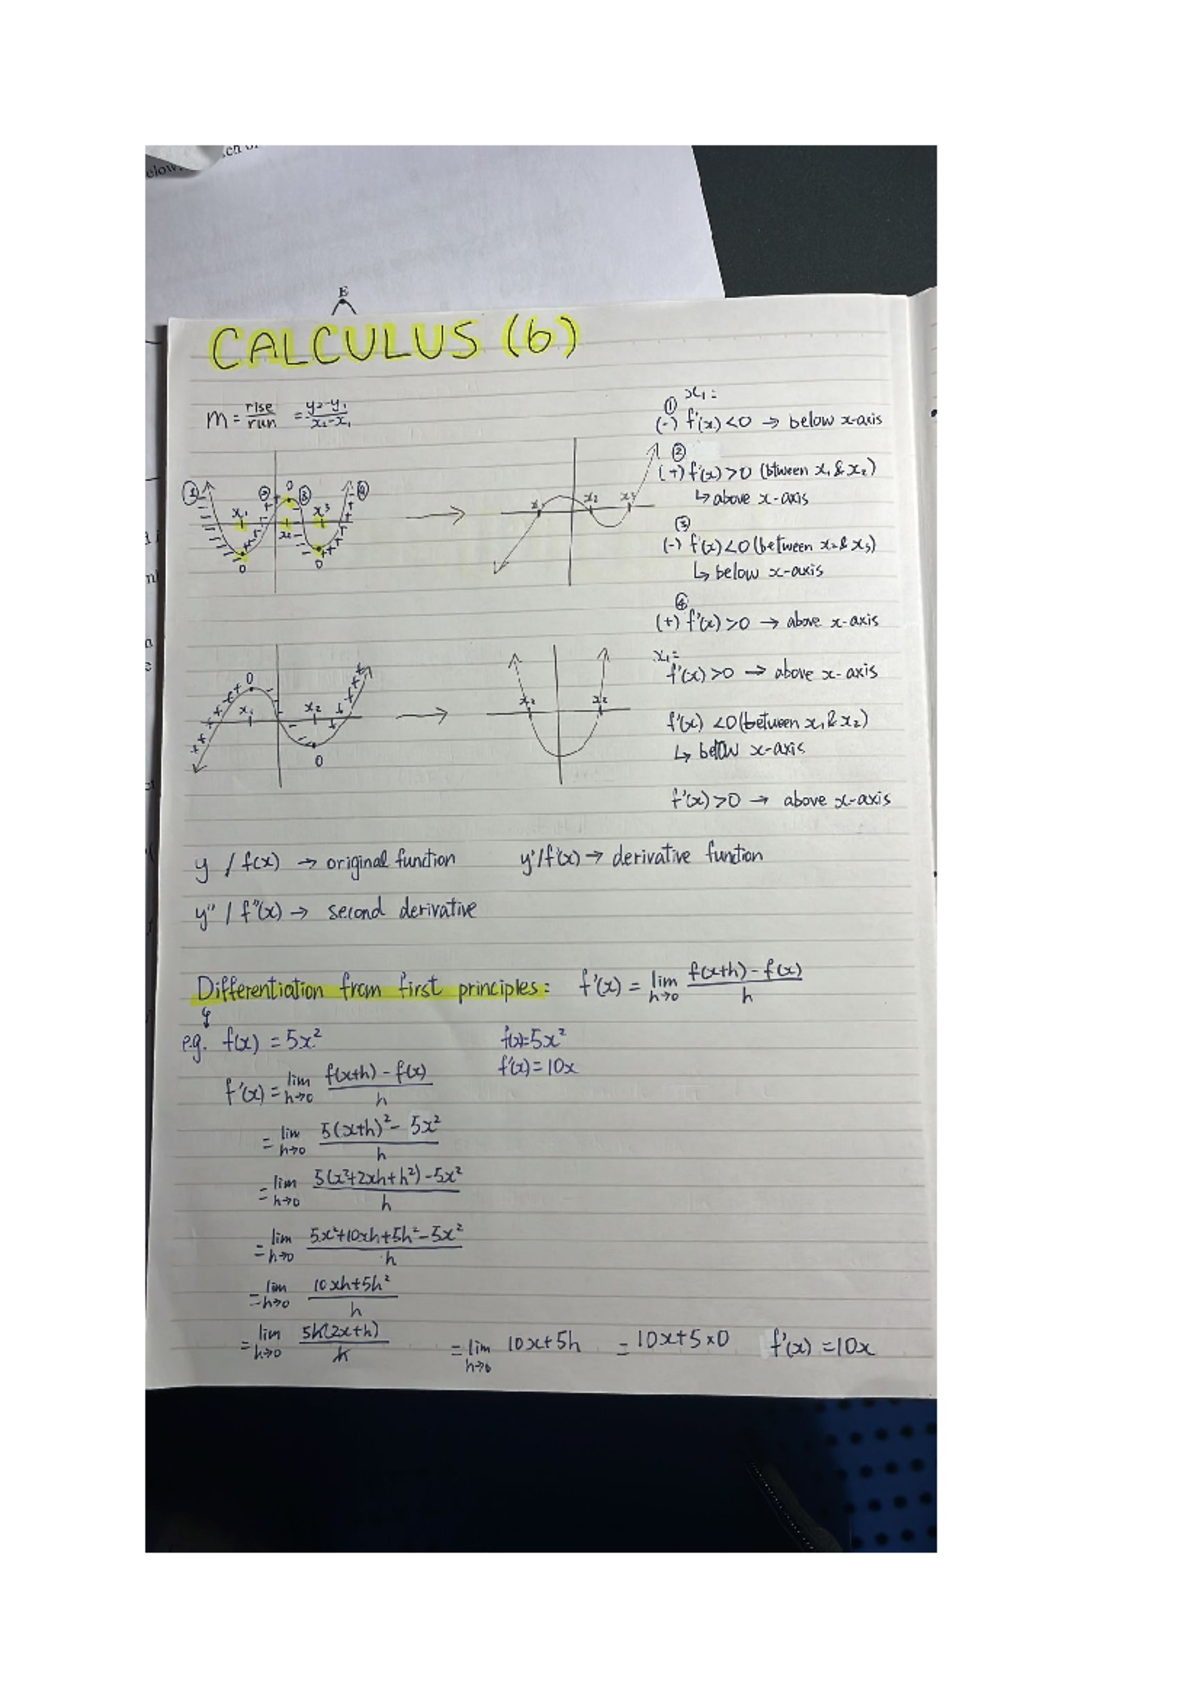 CALCULUS (6)
m = rise/run = y₂-y₁/x₂-x₁
x₁ =
①
(-) f'(x) <0 → below x-axis
②
(+) f'(x) >0 (btween x₁ & x₂)
↳ above x-axis
③
(-) f'(x) <0 (between x₂ & x₃)
↳ below x-axis
④
(+) f'(x) >0 → above x-axis
① ② 0 ③ ④
x₁ x₂ x³
0 0
x₂ x₃
x₁ =
f'(x) >0 → above x-axis
f'(x) <0 (between x₁ & x₂)
↳ below x-axis
f'(x) >0 → above x-axis
0
x₁ x₂
0
x₂
y / f(x) → original function y'/f'(x) → derivative function
y'' / f''(x) → second derivative
Differentiation from first principles: f'(x) = lim h→0 f(x+h) - f(x) / h
e.g. f(x) = 5x² f(x)=5x²
f'(x) = lim h→0 f(x+h) - f(x) / h f'(x) = 10x
= lim h→0 5(x+h)² - 5x² / h
= lim h→0 5(x²+2xh+h²) - 5x² / h
= lim h→0 5x²+10xh+5h²-5x² / h
= lim h→0 10xh+5h² / h
= lim h→0 5h(2x+h) / h = lim h→0 10x+5h = 10x+5×0 f'(x) = 10x
E